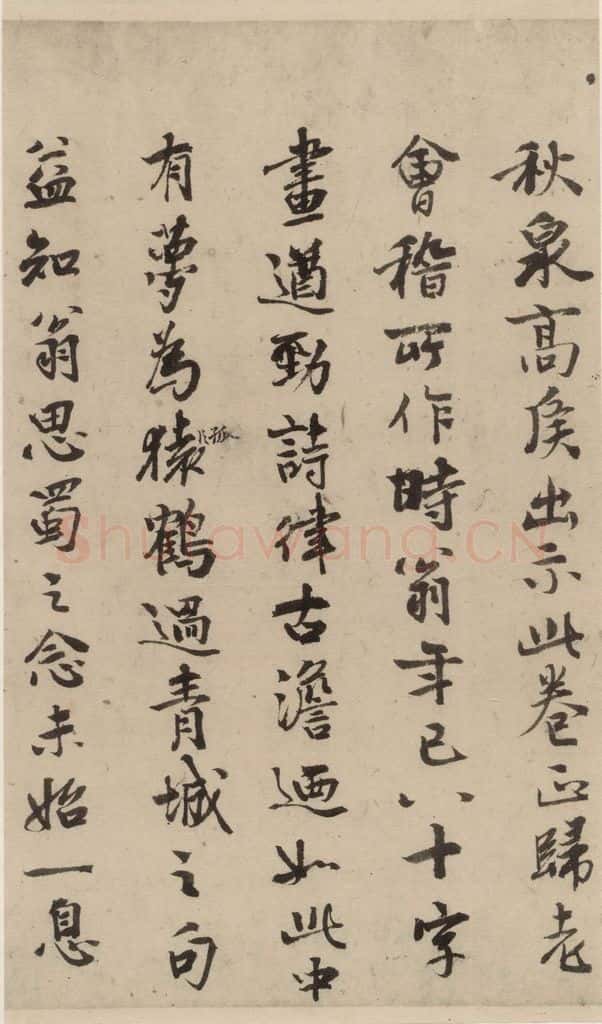 秋泉高矦出示此卷正歸老
會稽所作時翁年已八十字
畫遒勁詩律古澹迺如此中
有夢為猿孤鶴過青城之句
益知翁思蜀之念未始一息
ShufaWang.CN